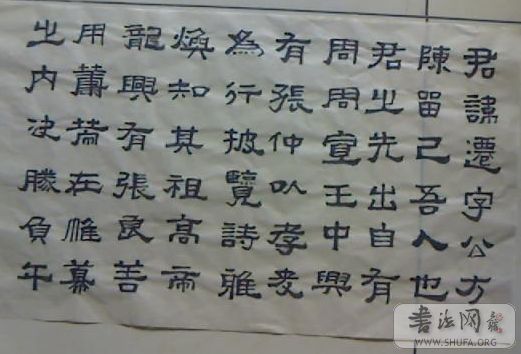 君諱遷字公方
陳留己吾人也
君之先出自有
周周宣王中興
有張仲以孝友
為行披覽詩雅
煥知其祖高帝
龍興有張良善
用籌策在帷幕
之內決勝負千
書法网
WWW.SHUFA.ORG